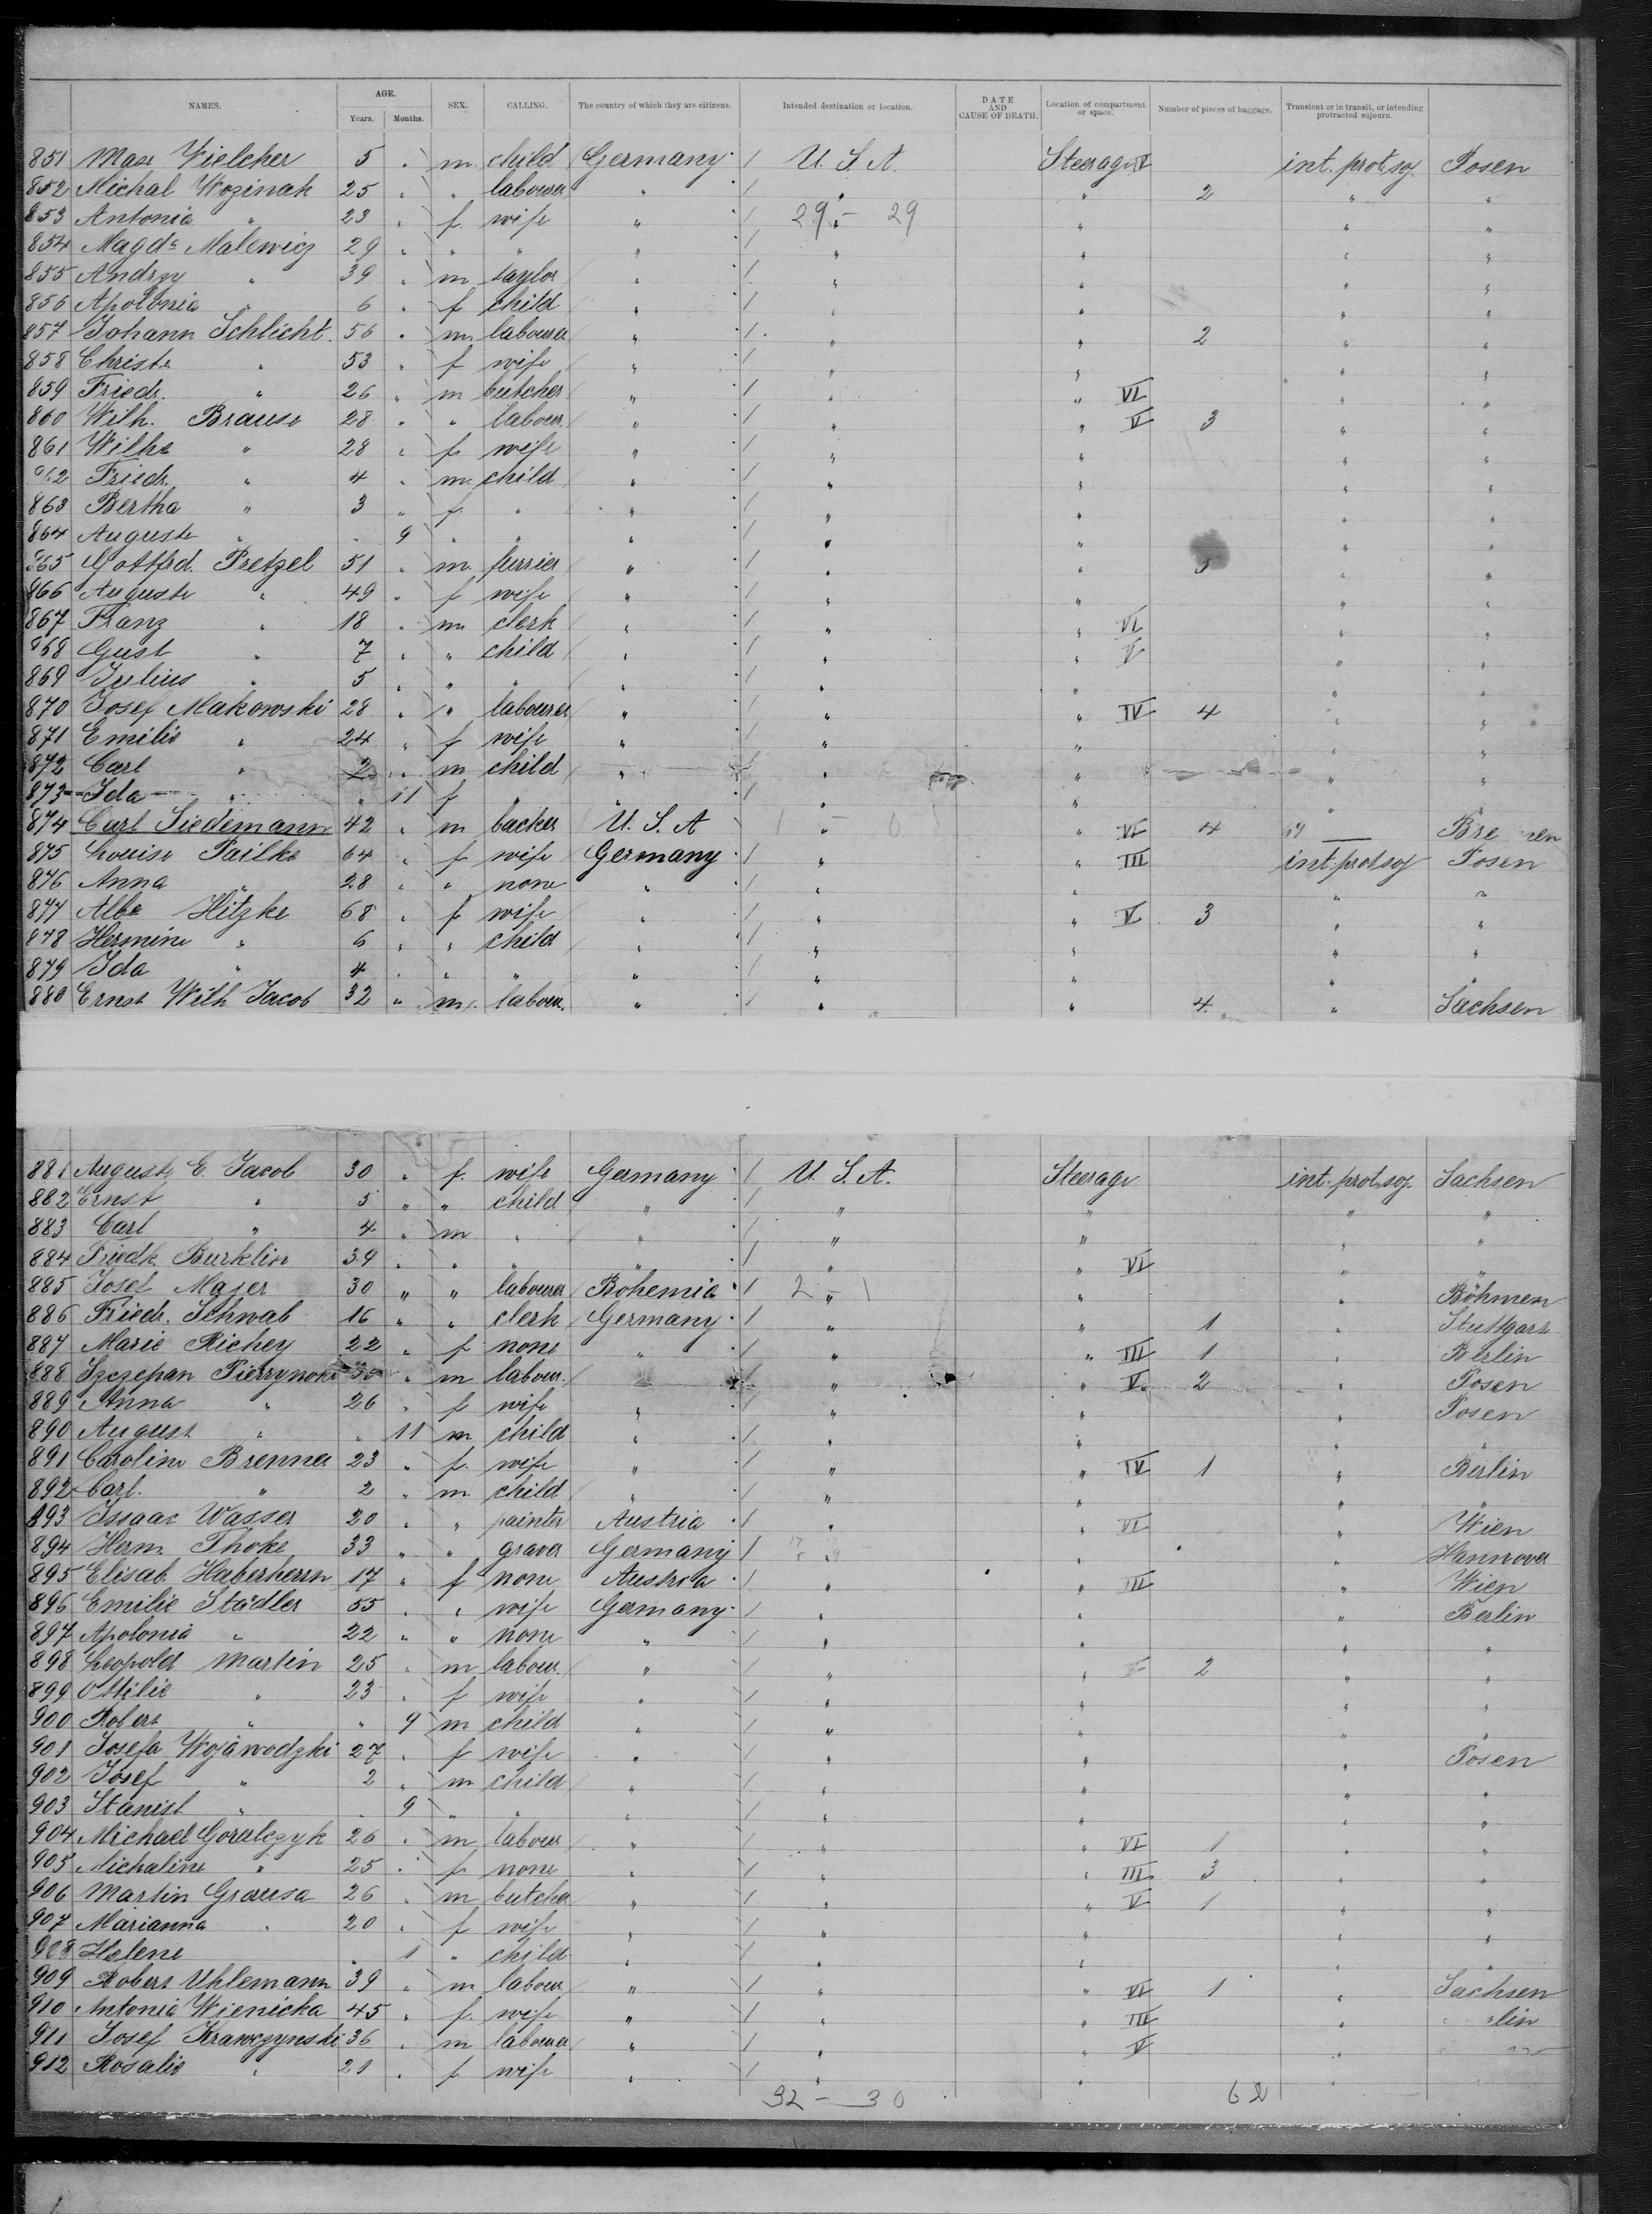 NAMES. AGE. Years. Months. SEX. CALLING. The country of which they are citizens. Intended destination or location. DATE AND CAUSE OF DEATH. Location of compartment or space. Number of pieces of baggage. Transient or in transit, or intending protracted sojourn.
851 Max Wielcher 5 " m child Germany 1 U. S. A. Steerage V int. prot. soj. Posen
852 Michal Wozinak 25 " " labourer " 1 " " 2 " "
853 Antonia " 23 " f. wife " 1 29 - 29 " " "
854 Magda Malewicz 29 " " " " 1 " " " "
855 Andrzy " 39 " m taylor " 1 " " " "
856 Apolonia " 6 " f child " 1 " " " "
857 Johann Schlicht 56 " m. labourer " 1 " " 2 " "
858 Christe " 53 " f wife " 1 " " " "
859 Friedr. " 26 " m butcher " 1 " " VI " "
860 Wilh. Brause 28 " " labour. " 1 " " V 3 " "
861 Wilhe " 28 " f wife " 1 " " " "
862 Friedr. " 4 " m. child " 1 " " " "
863 Bertha " 3 " f " " 1 " " " "
864 Auguste " " 9 " " " 1 " " " "
865 Gottfrd. Pretzel 51 " m. furrier " 1 " " " "
866 Auguste " 49 " f wife " 1 " " " "
867 Franz " 18 " m clerk " 1 " " VI " "
868 Gust " 7 " " child " 1 " " V " "
869 Julius " 5 " " " " 1 " " " "
870 Josef Makowski 28 " " labourer " 1 " " IV 4 " "
871 Emilie " 24 " f wife " 1 " " " "
872 Carl " 2 " m child " 1 " " " "
873 Ida " " 11 f " " 1 " " "
874 Carl Siedemann 42 " m backer U. S. A " " VI 4 Bremen
875 Louise Pailke 64 " f wife Germany 1 " " III int. prot soj Posen
876 Anna " 28 " " none " 1 " " " "
877 Albe Hitzke 68 " f wife " 1 " " V 3 " "
878 Hermine " 6 " " child " 1 " " " "
879 Ida " 4 " " " " 1 " " " "
880 Ernst Wilh Jacob 32 " m. labour. " 1 " " 4 " Sachsen
881 Auguste E. Jacob 30 " f. wife Germany 1 U. S. A. Steerage int. prot. soj. Sachsen
882 Ernst " 5 " " child " 1 " " " "
883 Carl " 4 " m " " 1 " " " "
884 Friedk Burklin 39 " " " " 1 " " VI " "
885 Josef Majer 30 " " labourer Bohemia 1 2 - 1 " " Böhmen
886 Friedr. Schwab 16 " " clerk Germany 1 " " 1 " Stuttgart
887 Marie Richey 22 " f none " 1 " " III 1 " Berlin
888 Szczepan 30 " m labour. " " V 2 " Posen
889 Anna " 26 " f wife " 1 " " " Posen
890 August " " 11 m child " 1 " " " "
891 Caroline Brenner 23 " f. wife " 1 " " IV 1 " Berlin
892 Carl. " 2 " m. child " 1 " " " "
893 Issaac Wasser 20 " " painter Austria 1 " " VI " Wien
894 Herm. Thoke 33 " " graver Germany 1 " " " Hannover
895 Elisab. Haberherrn 17 " f none Austria 1 " " III " Wien
896 Emilie Städler 55 " " wife Germany 1 " " " Berlin
897 Apolonia " 22 " " none " 1 " " " "
898 Leopold Martin 25 " m labour. " 1 " " 2 " "
899 Ottilie " 23 " f wife " 1 " " " "
900 Robert " " 9 m child " 1 " " " "
901 Josefa Wojawodzki 27 " f wife " 1 " " " Posen
902 Josef " 2 " m child " 1 " " " "
903 Stanisl " " 9 " " " 1 " " " "
904 Michael Goralczyk 26 " m labour " 1 " " VI 1 " "
905 Michaline " 25 " f none " 1 " " III 3 " "
906 Martin Grausa 26 " m butcher " 1 " " V 1 " "
907 Marianna " 20 " f wife " 1 " " " "
908 Helene " 1 " child " 1 " " " "
909 Robert Uhlemann 39 " m labour. " 1 " " VI 1 " Sachsen
910 Antonia Wienicka 45 " f. wife " 1 " " III "
911 Josef Krawczynski 36 " m labourer " 1 " " V "
912 Rosalie " 21 " f wife " 1 " " "
32 - 30 62